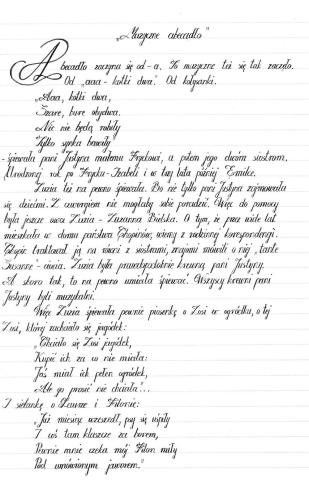 „Muzyczne abecadło"
Abecadło zaczyna się od - a. To muzyczne też się tak zaczęło.
Od „aaa - kotki dwa". Od kołysanki.
„Aaa, kotki dwa,
Szare, bure obydwa.
Nic nie będą robiły
Tylko synka bawiły"
- śpiewała pani Justyna małemu Fryckowi, a potem jego dwóm siostrom.
Urodzonej rok po Frycku - Izabeli i w trzy lata później Emilce.
Zuzia też na pewno śpiewała. Bo nie tylko pani Justyna zajmowała
się dziećmi. Z czworgiem nie mogłaby sobie poradzić. Więc do pomocy
była jeszcze owa Zuzia - Zuzanna Bielska. O tym, że przez wiele lat
mieszkała w domu państwa Chopinów, wiemy z rodzinnej korespondencji.
Chopin traktował ją na równi z siostrami, znajomi mówili o niej „tante
Susanne" - ciocia. Zuzia była prawdopodobnie krewną pani Justyny.
A skoro tak, to na pewno umiała śpiewać. Wszyscy krewni pani
Justyny byli muzykalni.
Więc Zuzia śpiewała pewnie piosenkę o Zosi w ogródku, o tej
Zosi, której zachciało się jagódek:
„Chciało się Zosi jagódek,
Kupić ich za co nie miała:
Jaś miał ich pełen ogródek,
Ale go prosić nie chciała"...
I sielankę o Laurze i Filonie:
„Już miesiąc wzeszedł, psy się uśpiły
I coś tam klaszcze za borem,
Pewnie mnie czeka mój Filon miły
Pod umówionym jaworem."